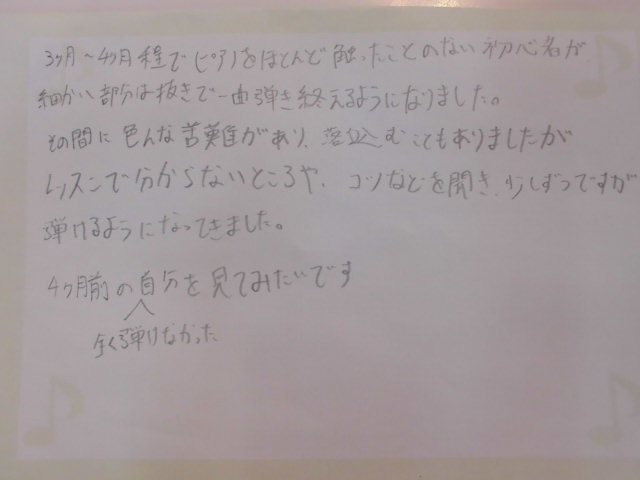 3ヶ月〜4ヶ月程でピアノをほとんど触ったことのない初心者が
細かい部分は抜きで一曲弾き終えるようになりました。
その間に色んな苦難があり、落込むこともありましたが
レッスンで分からないところや、コツなどを聞き、少しずつですが
弾けるようになってきました。
4ヶ月前の自分を見てみたいです
全く弾けなかった